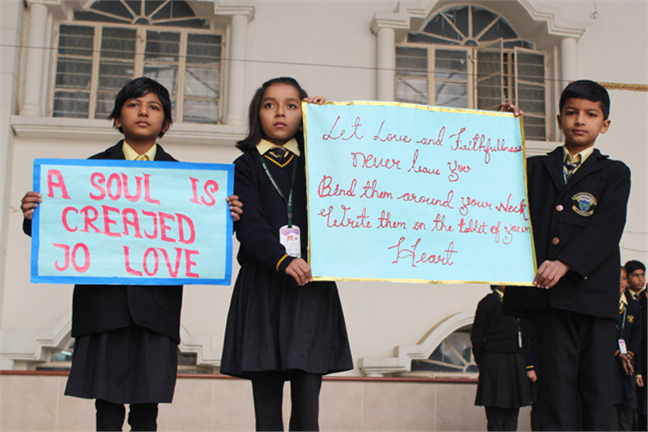 A SOUL IS
CREAJED
JO LOVE
Let Love and Faithfullness
Never leave you
Bind them around your Neck
Write them on the tablet of your
Heart